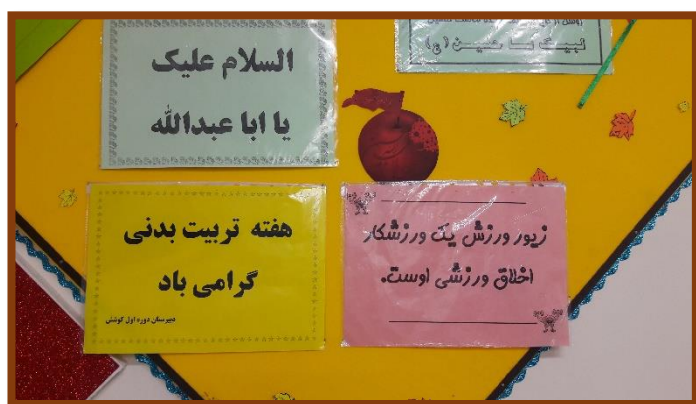 السلام علیک
یا ابا عبدالله
لبیک یا حسین (ع)
هفته تربیت بدنی
گرامی باد
دبیرستان دوره اول کوشش
زیور ورزش یک ورزشکار
اخلاق ورزشی اوست.